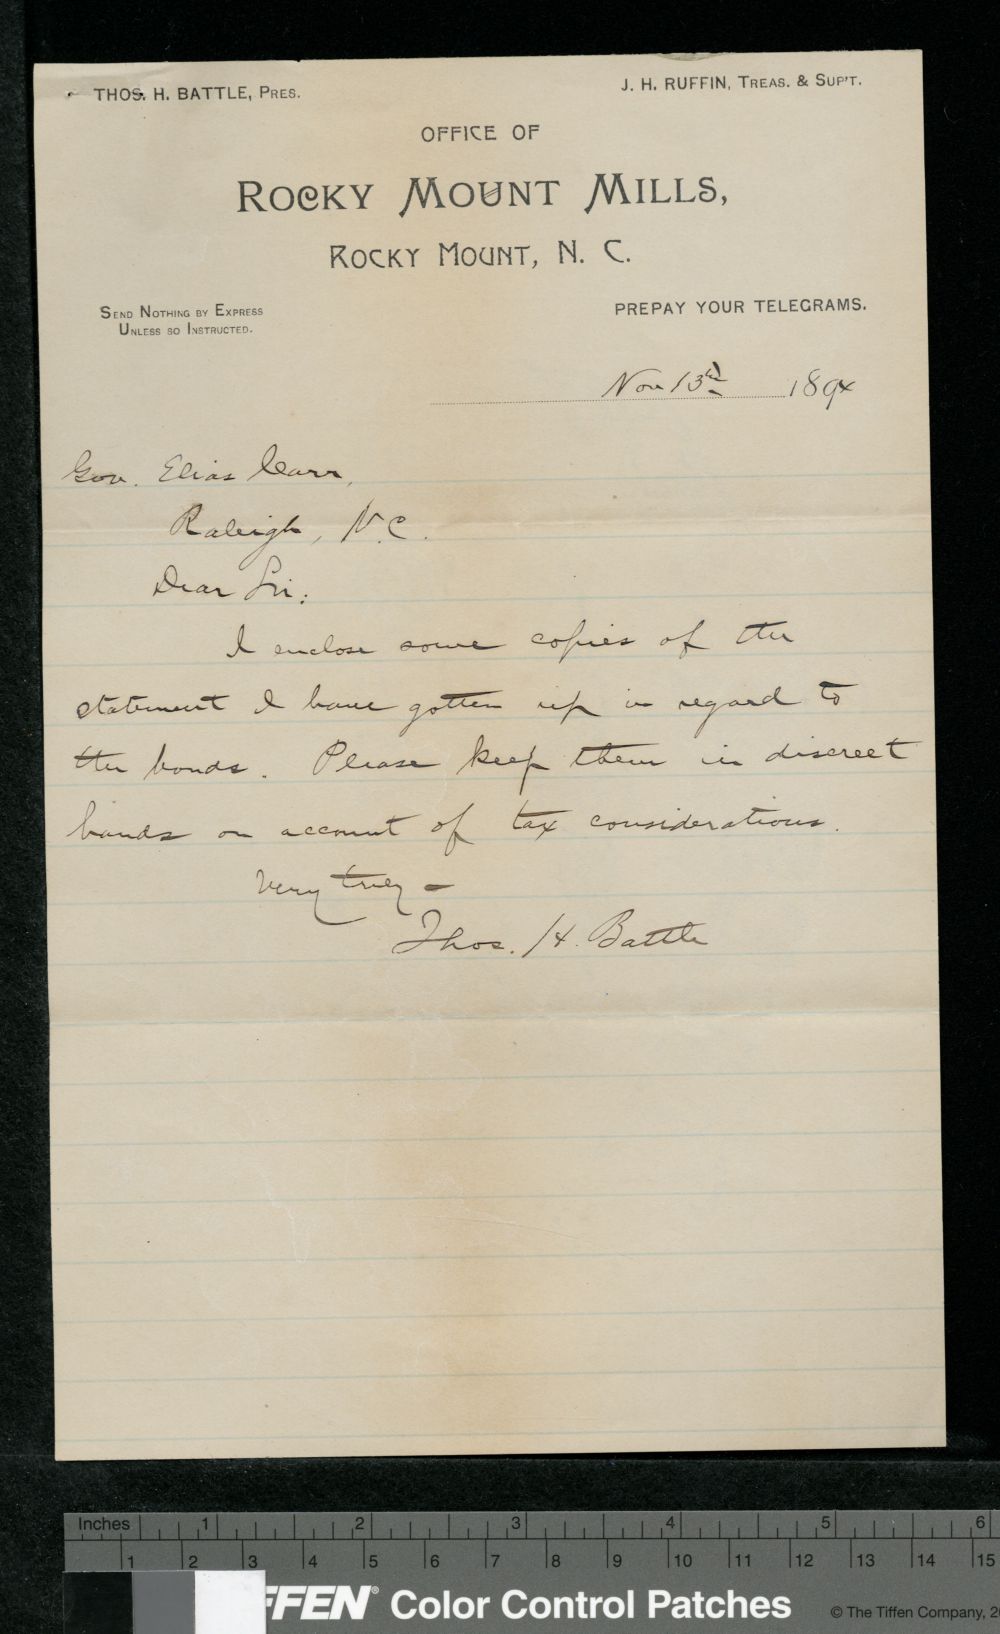 THOS. H. BATTLE, PRES.
J. H. RUFFIN, TREAS. & SUP'T.
OFFICE OF
ROCKY MOUNT MILLS,
ROCKY MOUNT, N. C.
SEND NOTHING BY EXPRESS
UNLESS SO INSTRUCTED.
PREPAY YOUR TELEGRAMS.
Nov 13th 1894
Gov. Elias Carr,
Raleigh, N.C.
Dear Sir:
I enclose some copies of the
statement I have gotten up in regard to
the bonds. Please keep them in discreet
hands on account of tax considerations.
Very truly -
Thos. H. Battle
Inches 1 2 3 4 5 6
1 2 3 4 5 6 7 8 9 10 11 12 13 14 15
FFEN® Color Control Patches
© The Tiffen Company, 20